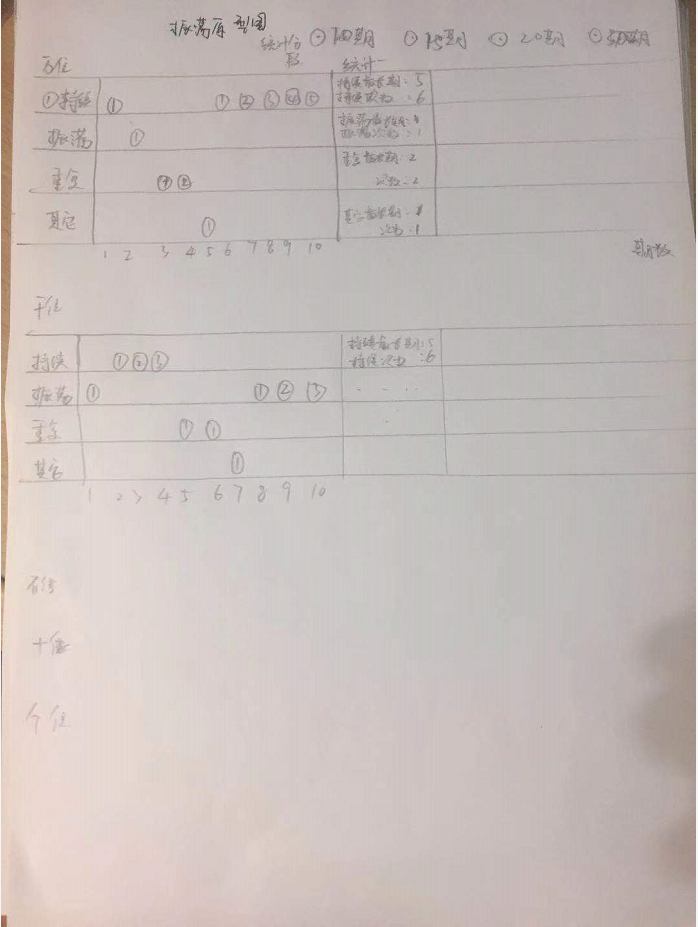 振荡原型图
统计分段 ⊙10期 ⊙15期 ⊙20期 ⊙50期
万位 统计一
①持续 ① ① ② ③ ④ ⑤ 持续最长期:5
持续次数:6
振荡 ① 振荡最长期:1
振荡次数:1
重全 ① ② 重全最长期:2
次数:2
其它 ① 其它最长期:1
次数:1
1 2 3 4 5 6 7 8 9 10 期数
千位
持续 ① ② ③ 持续最长期:5
持续次数:6
振荡 ① ① ② ③
重全 ① ①
其它 ①
1 2 3 4 5 6 7 8 9 10
百位
十位
个位